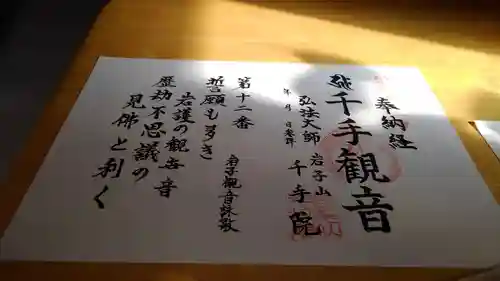 奉納経
千手観音
弘法大師 岩子山
年 月 日
千手院
第十二番
岩子観音詠歌
誓願もふかき
岩護の観世音
歴劫不思議の
見佛と利く